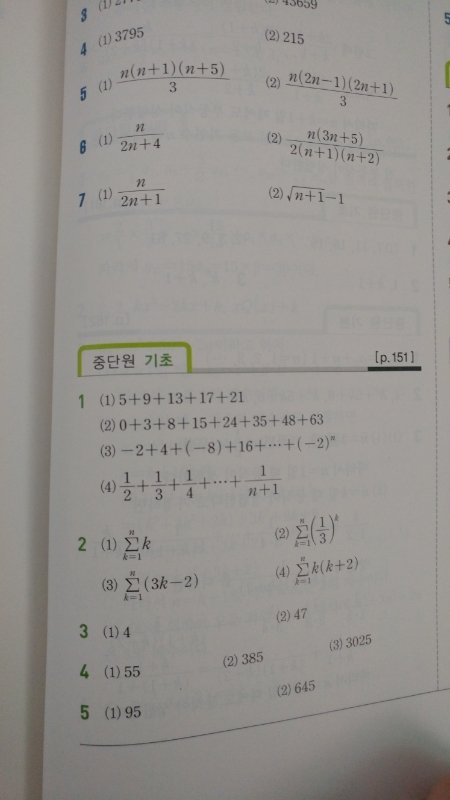 3 (1) (2) 43659
4 (1) 3795 (2) 215
5 (1) n(n+1)(n+5)/3 (2) n(2n−1)(2n+1)/3
6 (1) n/2n+4 (2) n(3n+5)/2(n+1)(n+2)
7 (1) n/2n+1 (2) √n+1−1
중단원 기초 [p.151]
1 (1) 5+9+13+17+21
(2) 0+3+8+15+24+35+48+63
(3) −2+4+(−8)+16+⋯+(−2)ⁿ
(4) 1/2+1/3+1/4+⋯+1/n+1
2 (1) n∑k=1 k (2) n∑k=1 (1/3)ᵏ
(3) n∑k=1 (3k−2) (4) n∑k=1 k(k+2)
3 (1) 4 (2) 47
4 (1) 55 (2) 385 (3) 3025
5 (1) 95 (2) 645